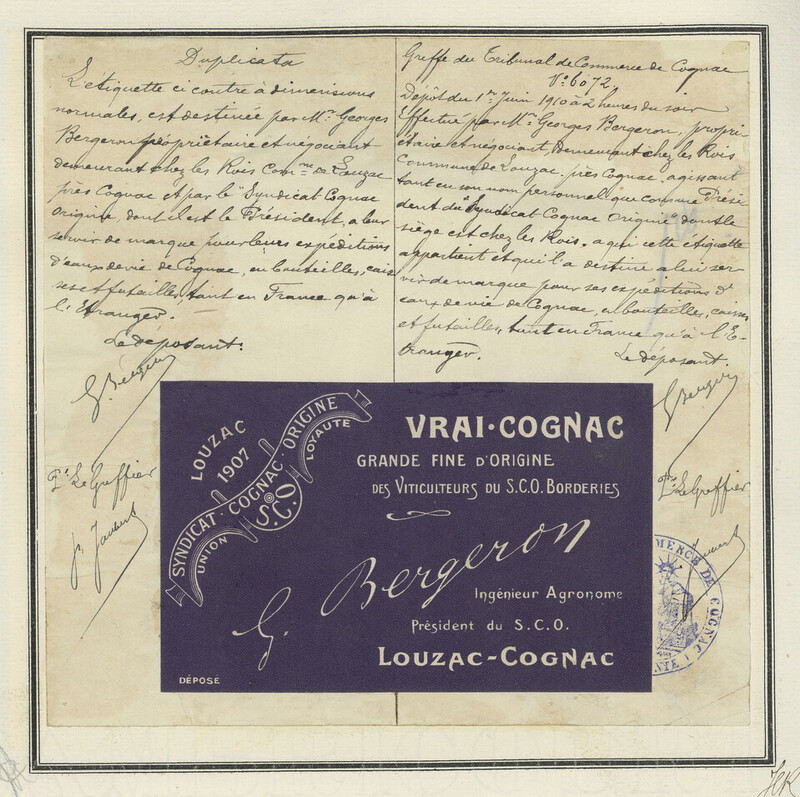 Duplicata
L'etiquette ci contre à dimensions
normales, est destinée par Mr Georges
Bergeron propriétaire et négociant
demeurant chez les Rois Comme de Louzac
près Cognac et par le "Syndicat Cognac
Origine, dont il est le Président, a leur
servir de marque pour leurs expéditions
d'eaux de vie de Cognac, en bouteilles, cais
ses et futailles, tant en France qu'à
l'Etranger.
Le déposant:
G. Bergeron
Pr Le Greffier
Greffe du Tribunal de Commerce de Cognac
No 6072,
Dépôt du 1er Juin 1910 à 2 heures du soir
Effectué par Mr Georges Bergeron, propri-
étaire et négociant, demeurant chez les Rois
Commune de Louzac, près Cognac, agissant
tant en son nom personnel que comme Prési
dent du "Syndicat Cognac Origine" dont le
siège est chez les Rois. a qui cette étiquette
appartient et qui l'a destine a lui ser-
vir de marque pour ses expéditions d'
eaux de vie de Cognac, en bouteilles, caisses
et futailles, tant en France qu'à l'E-
tranger.
Le déposant.
G. Bergeron
Pr Le Greffier
LOUZAC
1907
SYNDICAT · COGNAC · ORIGINE
UNION
LOYAUTÉ
S.C.O
VRAI·COGNAC
GRANDE FINE D'ORIGINE
DES VITICULTEURS DU S.C.O. BORDERIES
G. Bergeron
Ingénieur Agronome
Président du S.C.O.
LOUZAC-COGNAC
DÉPOSÉ
MERCE DE COGNAC